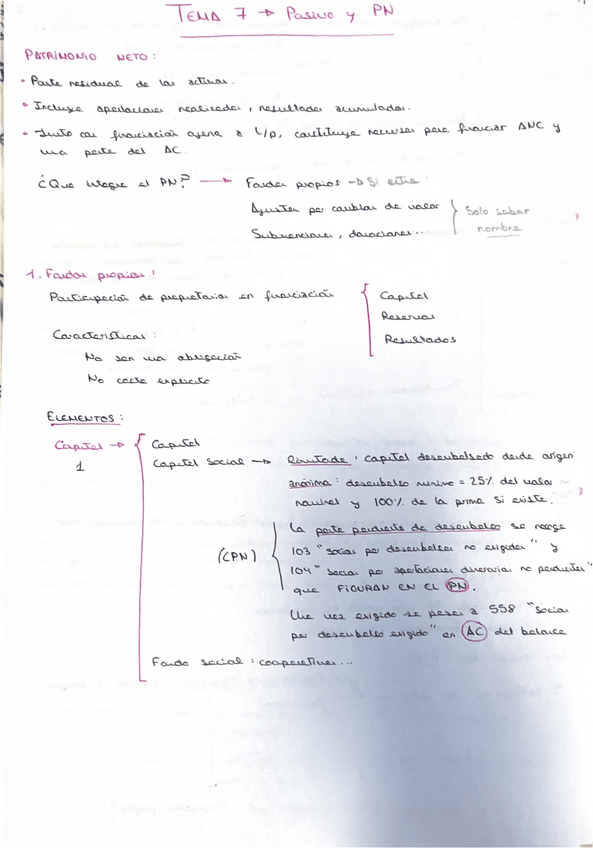 TEMA 7 → Pasivo y PN
PATRIMONIO NETO:
• Parte residual de los activos.
• Incluye aportaciones realizadas, resultados acumulados.
• Junto con financiación ajena a L/p, constituye recursos para financiar ANC y
una parte del AC.
¿Que integra el PN? → Fondos propios → Si entra
Ajustes por cambios de valor
Subvenciones, donaciones...
Solo saber
nombre
1. Fondos propios:
Participación de propietarios en financiación
Capital
Reservas
Resultados
Características:
No son una obligación
No coste explicito
ELEMENTOS:
Capital →
1
Capital
Capital Social → limitada: capital desembolsado desde origen
anónima: desembolso minimo = 25% del valor
nominal y 100% de la prima si existe.
(CPN)
La parte pendiente de desembolso se recoge
103 "socios por desembolsos no exigidos" y
104 "socios por aportaciones dinerarias no pendientes"
que FIGURAN EN EL PN.
Una vez exigido se pasa a 558 "socios
por desembolso exigido" en AC del balance
Fondo social: cooperativas...